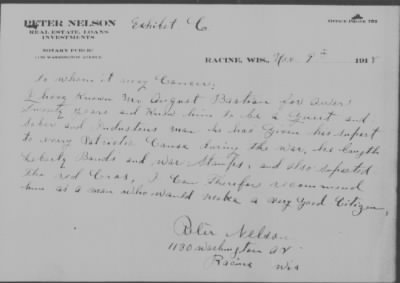 Exhibit C
PETER NELSON
REAL ESTATE, LOANS
INVESTMENTS
NOTARY PUBLIC
1130 WASHINGTON AVENUE
OFFICE PHONE
RACINE, WIS., Nov 9th 1918
To whom it may Concern;
I have Known Mr August Bastian for over
Twenty years and Know him to be a Quiet and
Sober and Industrous man he has Given his suport
to every Patriotic Cause during the war, he bought
Liberty Bonds and war Stamps, and also suported
the red Cros, I Can Therefor recommend
him as a man who would make a very Good Citizen,
Peter Nelson
1130 Washington av
Racine Wis